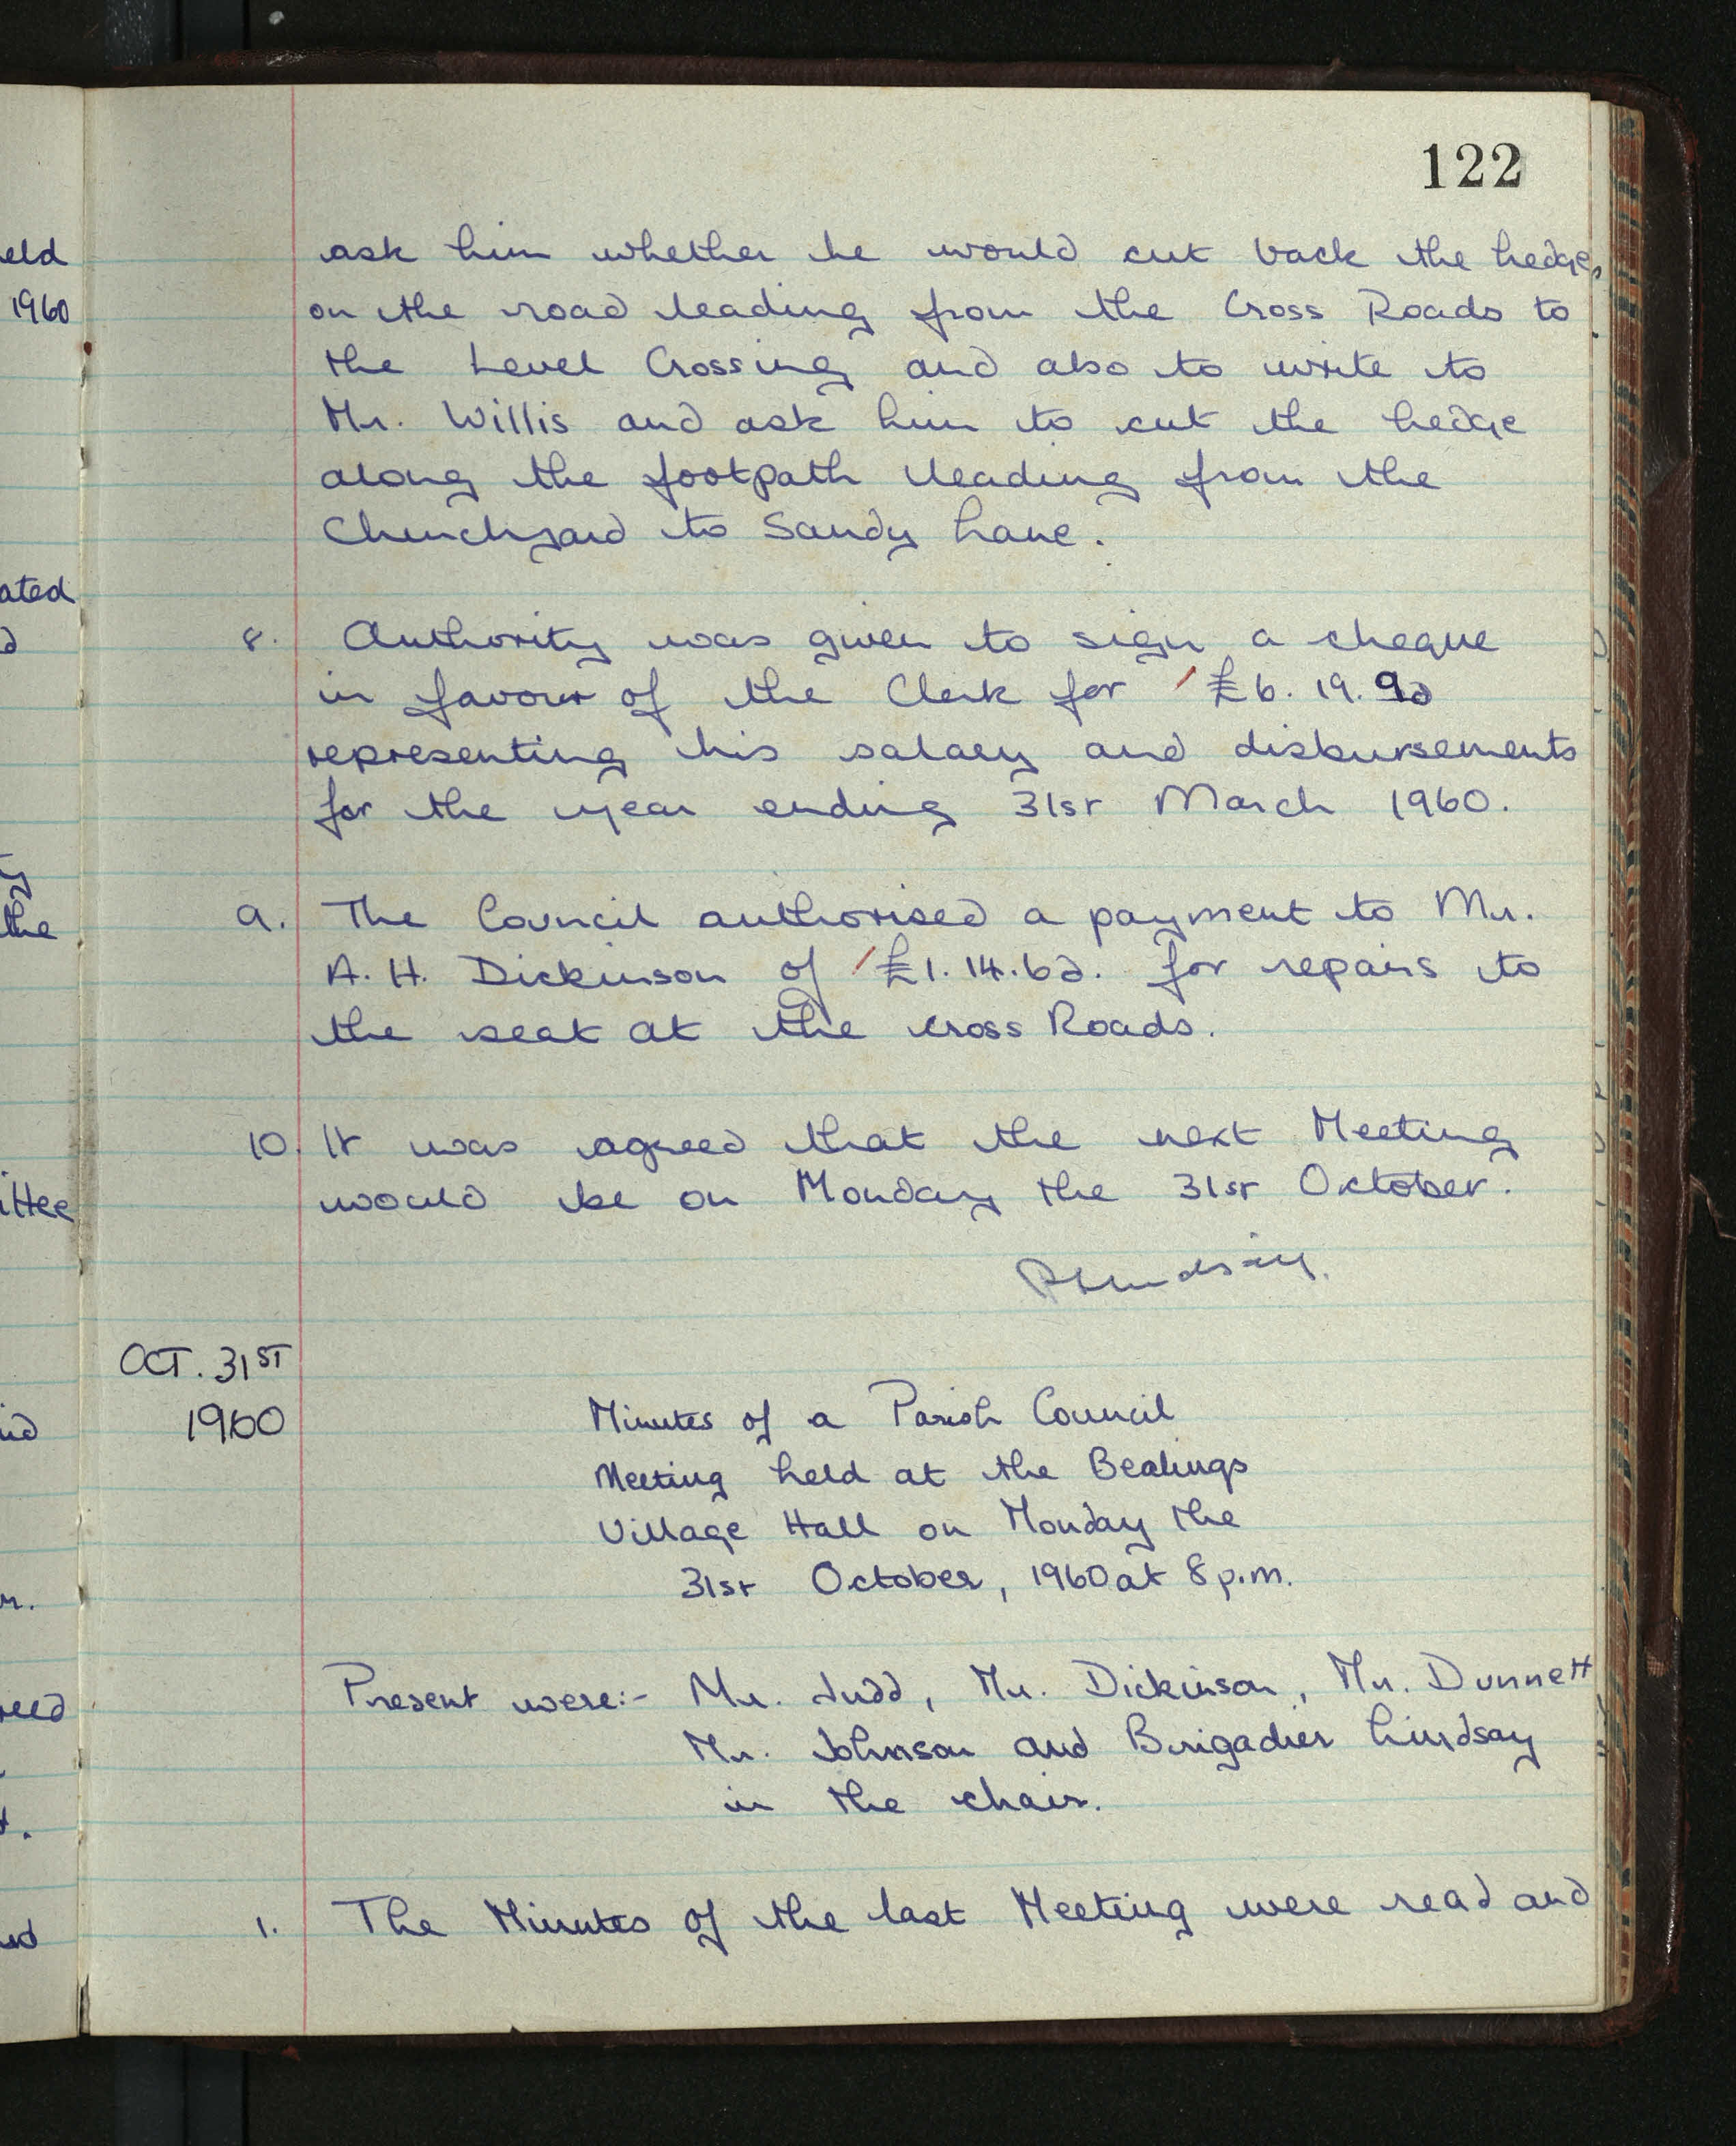 122
ask him whether he would cut back the hedges
on the road leading from the Cross Roads to
the Level Crossing and also to write to
Mr. Willis and ask him to cut the hedge
along the footpath leading from the
Churchyard to Sandy Lane.
8. Authority was given to sign a cheque
in favour of the Clerk for £6. 19. 9d
representing his salary and disbursements
for the year ending 31st March 1960.
9. The Council authorised a payment to Mr.
A. H. Dickinson of £1. 14. 6d. for repairs to
the seat at the cross Roads.
10. It was agreed that the next Meeting
would be on Monday the 31st October.
Lindsay.
OCT. 31ST
1960
Minutes of a Parish Council
Meeting held at the Bealings
Village Hall on Monday the
31st October, 1960 at 8 p.m.
Present were:- Mr. Judd, Mr. Dickinson, Mr. Dunnett
Mr. Johnson and Brigadier Lindsay
in the chair.
1. The Minutes of the last Meeting were read and
eld
1960
ated
the
ittee